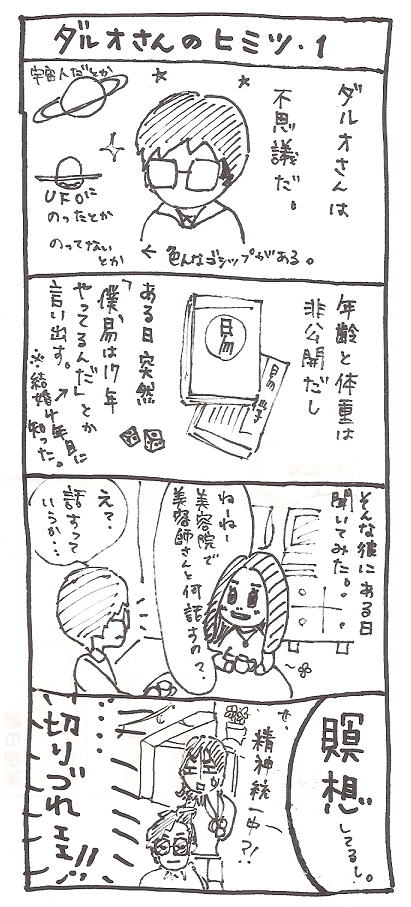 ダルオさんのヒミツ・1
ダルオさんは
不思議だ。
宇宙人だとか
UFOに
のったとか
のってない
とか
← 色んなゴシップがある。
年齢と体重は
非公開だし
易
易
ある日突然
「僕、易は17年
やってるんだ」とか
言い出す。
※結婚4年目に
知った。
そんな彼にある日
聞いてみた。
ねーねー
美容院で
美容師さんと何話すの?
え?
話すって
いうか…
瞑想
してるし。
精神統一中?!
切りづれェ!!